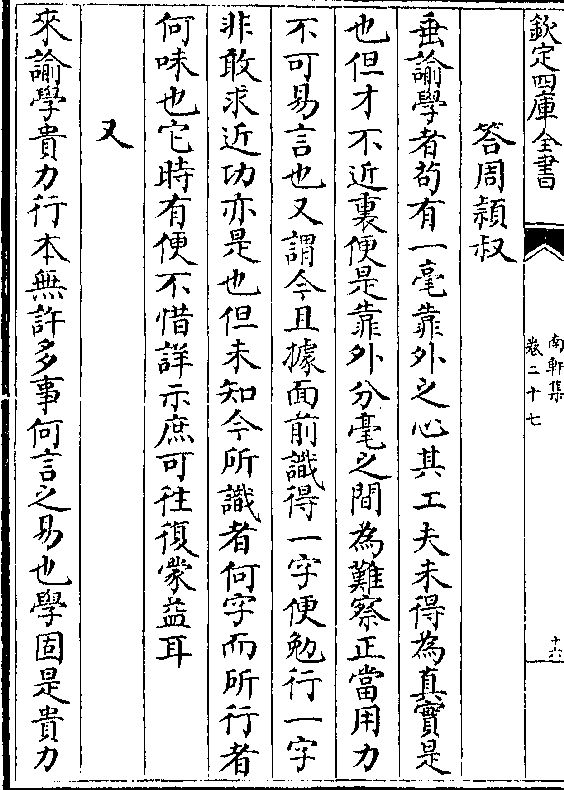 欽定四庫全書
南軒集
卷二十七
十六
答周頴叔
垂諭學者茍有一毫靠外之心其工夫未得為真實是
也但才不近裏便是靠外分毫之間為難察正當用力
不可易言也又謂今且據面前識得一字便勉行一字
非敢求近功亦是也但未知今所識者何字而所行者
何味也它時有便不惜詳示庶可往復蒙益耳
又
來諭學貴力行本無許多事何言之易也學固是貴力